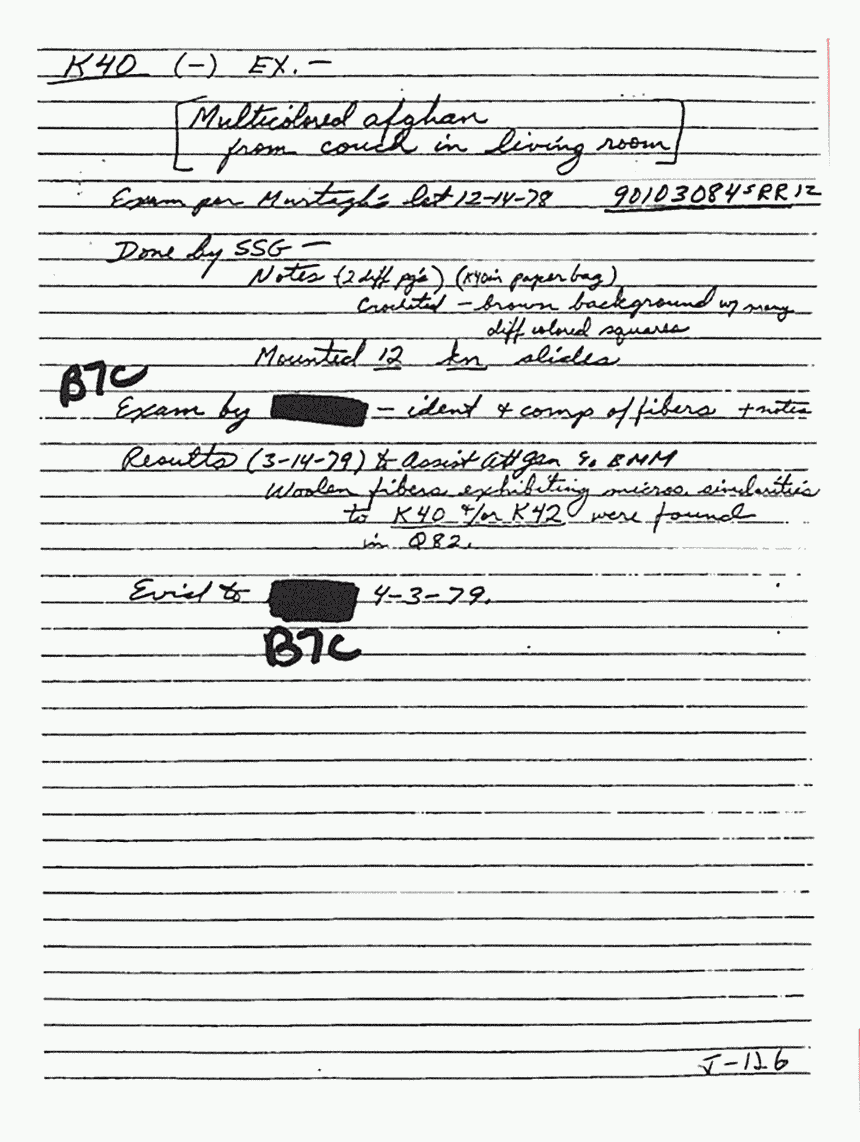 K40 (-) EX. -
[Multicolored afghan
from couch in living room]
Exam per Murtagh's let 12-14-78 90103084 S RR 12
Done by SSG -
Notes (2 diff pg's) (K40 in paper bag)
Crocheted - brown background w/ many
diff colored squares
Mounted 12 kn slides
B7C
Exam by - ident & comp of fibers + notes
Results (3-14-79) to Assist Att Gen BMM
Woolen fibers exhibiting micros. similarities
to K40 &/or K42 were found
in Q82.
Evid to 4-3-79.
B7C
J-126